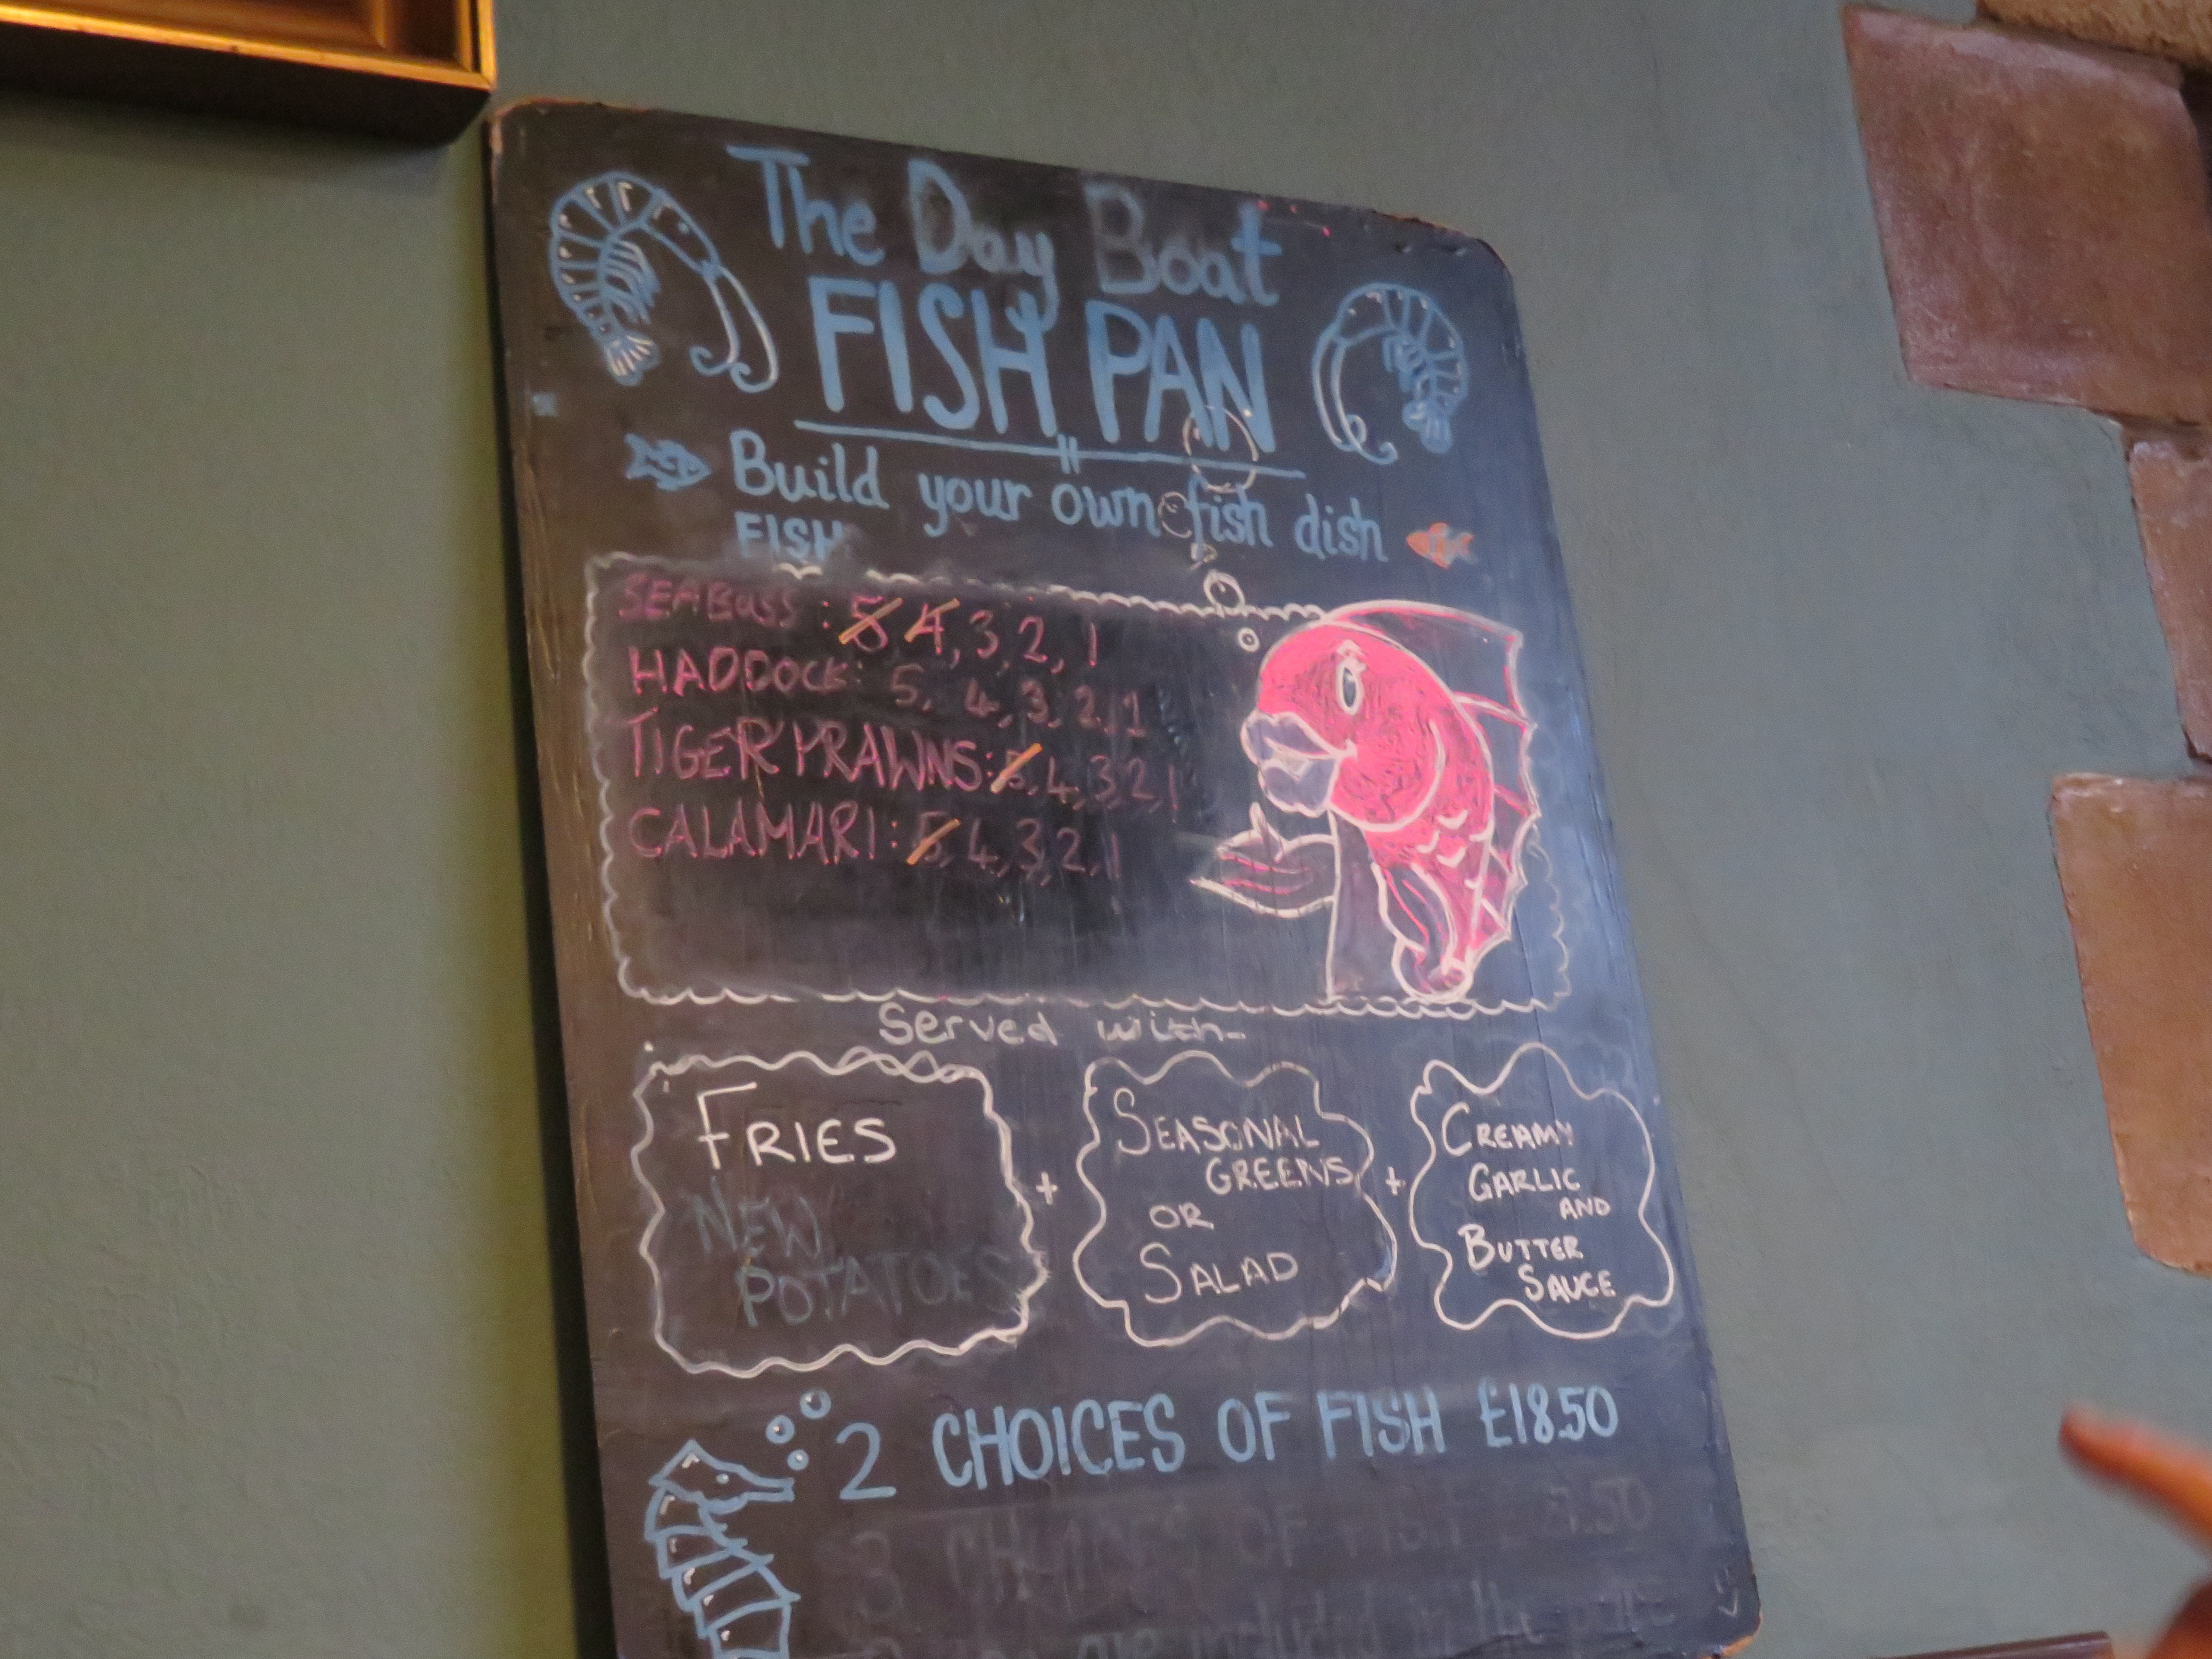 The Day Boat
FISH PAN
Build your own fish dish
FISH
SEABASS : 5 4, 3, 2, 1
HADDOCK: 5, 4, 3, 2, 1
TIGER PRAWNS: 5, 4, 3, 2, 1
CALAMARI: 5, 4, 3, 2, 1
Served with-
FRIES
NEW
POTATOES
+
SEASONAL
GREENS
OR
SALAD
+
CREAMY
GARLIC
AND
BUTTER
SAUCE
2 CHOICES OF FISH £18.50
3 CHOICES OF FISH